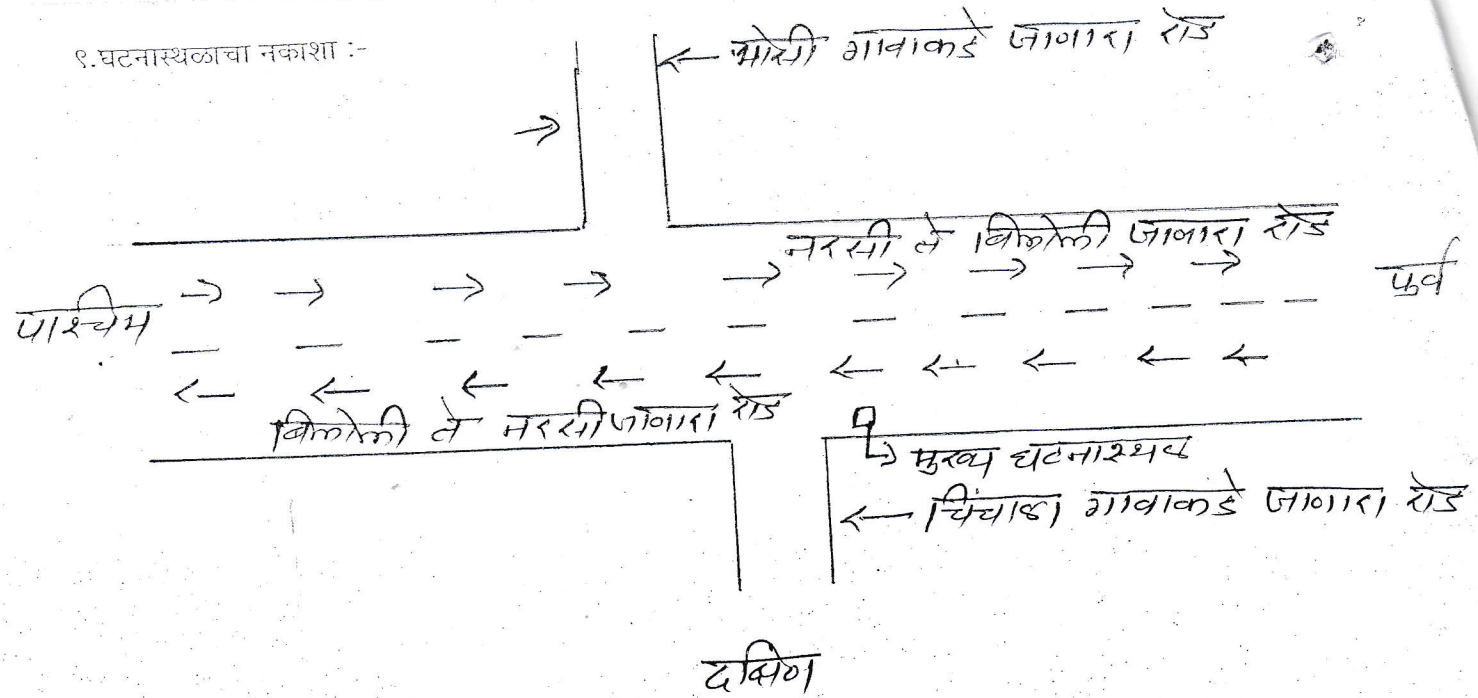 ९.घटनास्थळाचा नकाशा :-
भोसी गावाकडे जाणारा रोड
नरसी ते बिलोली जाणारा रोड
पाश्चिम
पुर्व
बिलोली ते नरसी जाणारा रोड
मुख्य घटनास्थळ
चिंचाळा गावाकडे जाणारा रोड
दक्षिण